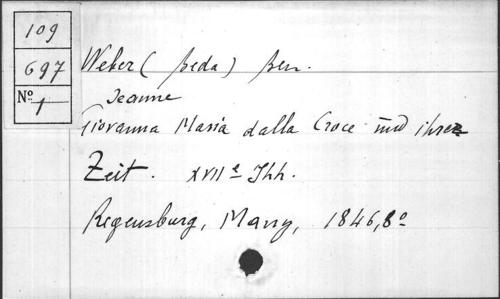 109
697
Nº 1
Weber (Beda) Ben.
Jeanne
Giovanna Maria dalla Croce und ihre
Zeit. XVIIe Jhh.
Regensburg, Manz, 1846, 8º